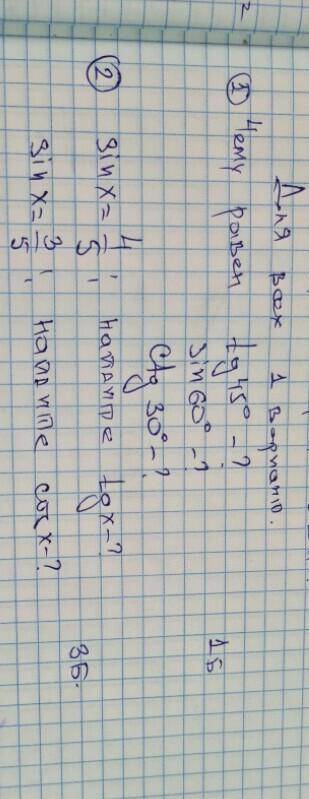 Для вах 1 вариант.
① Чему равен tg 45° - ? 1б
sin 60° - ?
ctg 30° - ?
② sin x = 4/5; найдите tg x - ? 3б.
sin x = 3/5; найдите cos x - ?